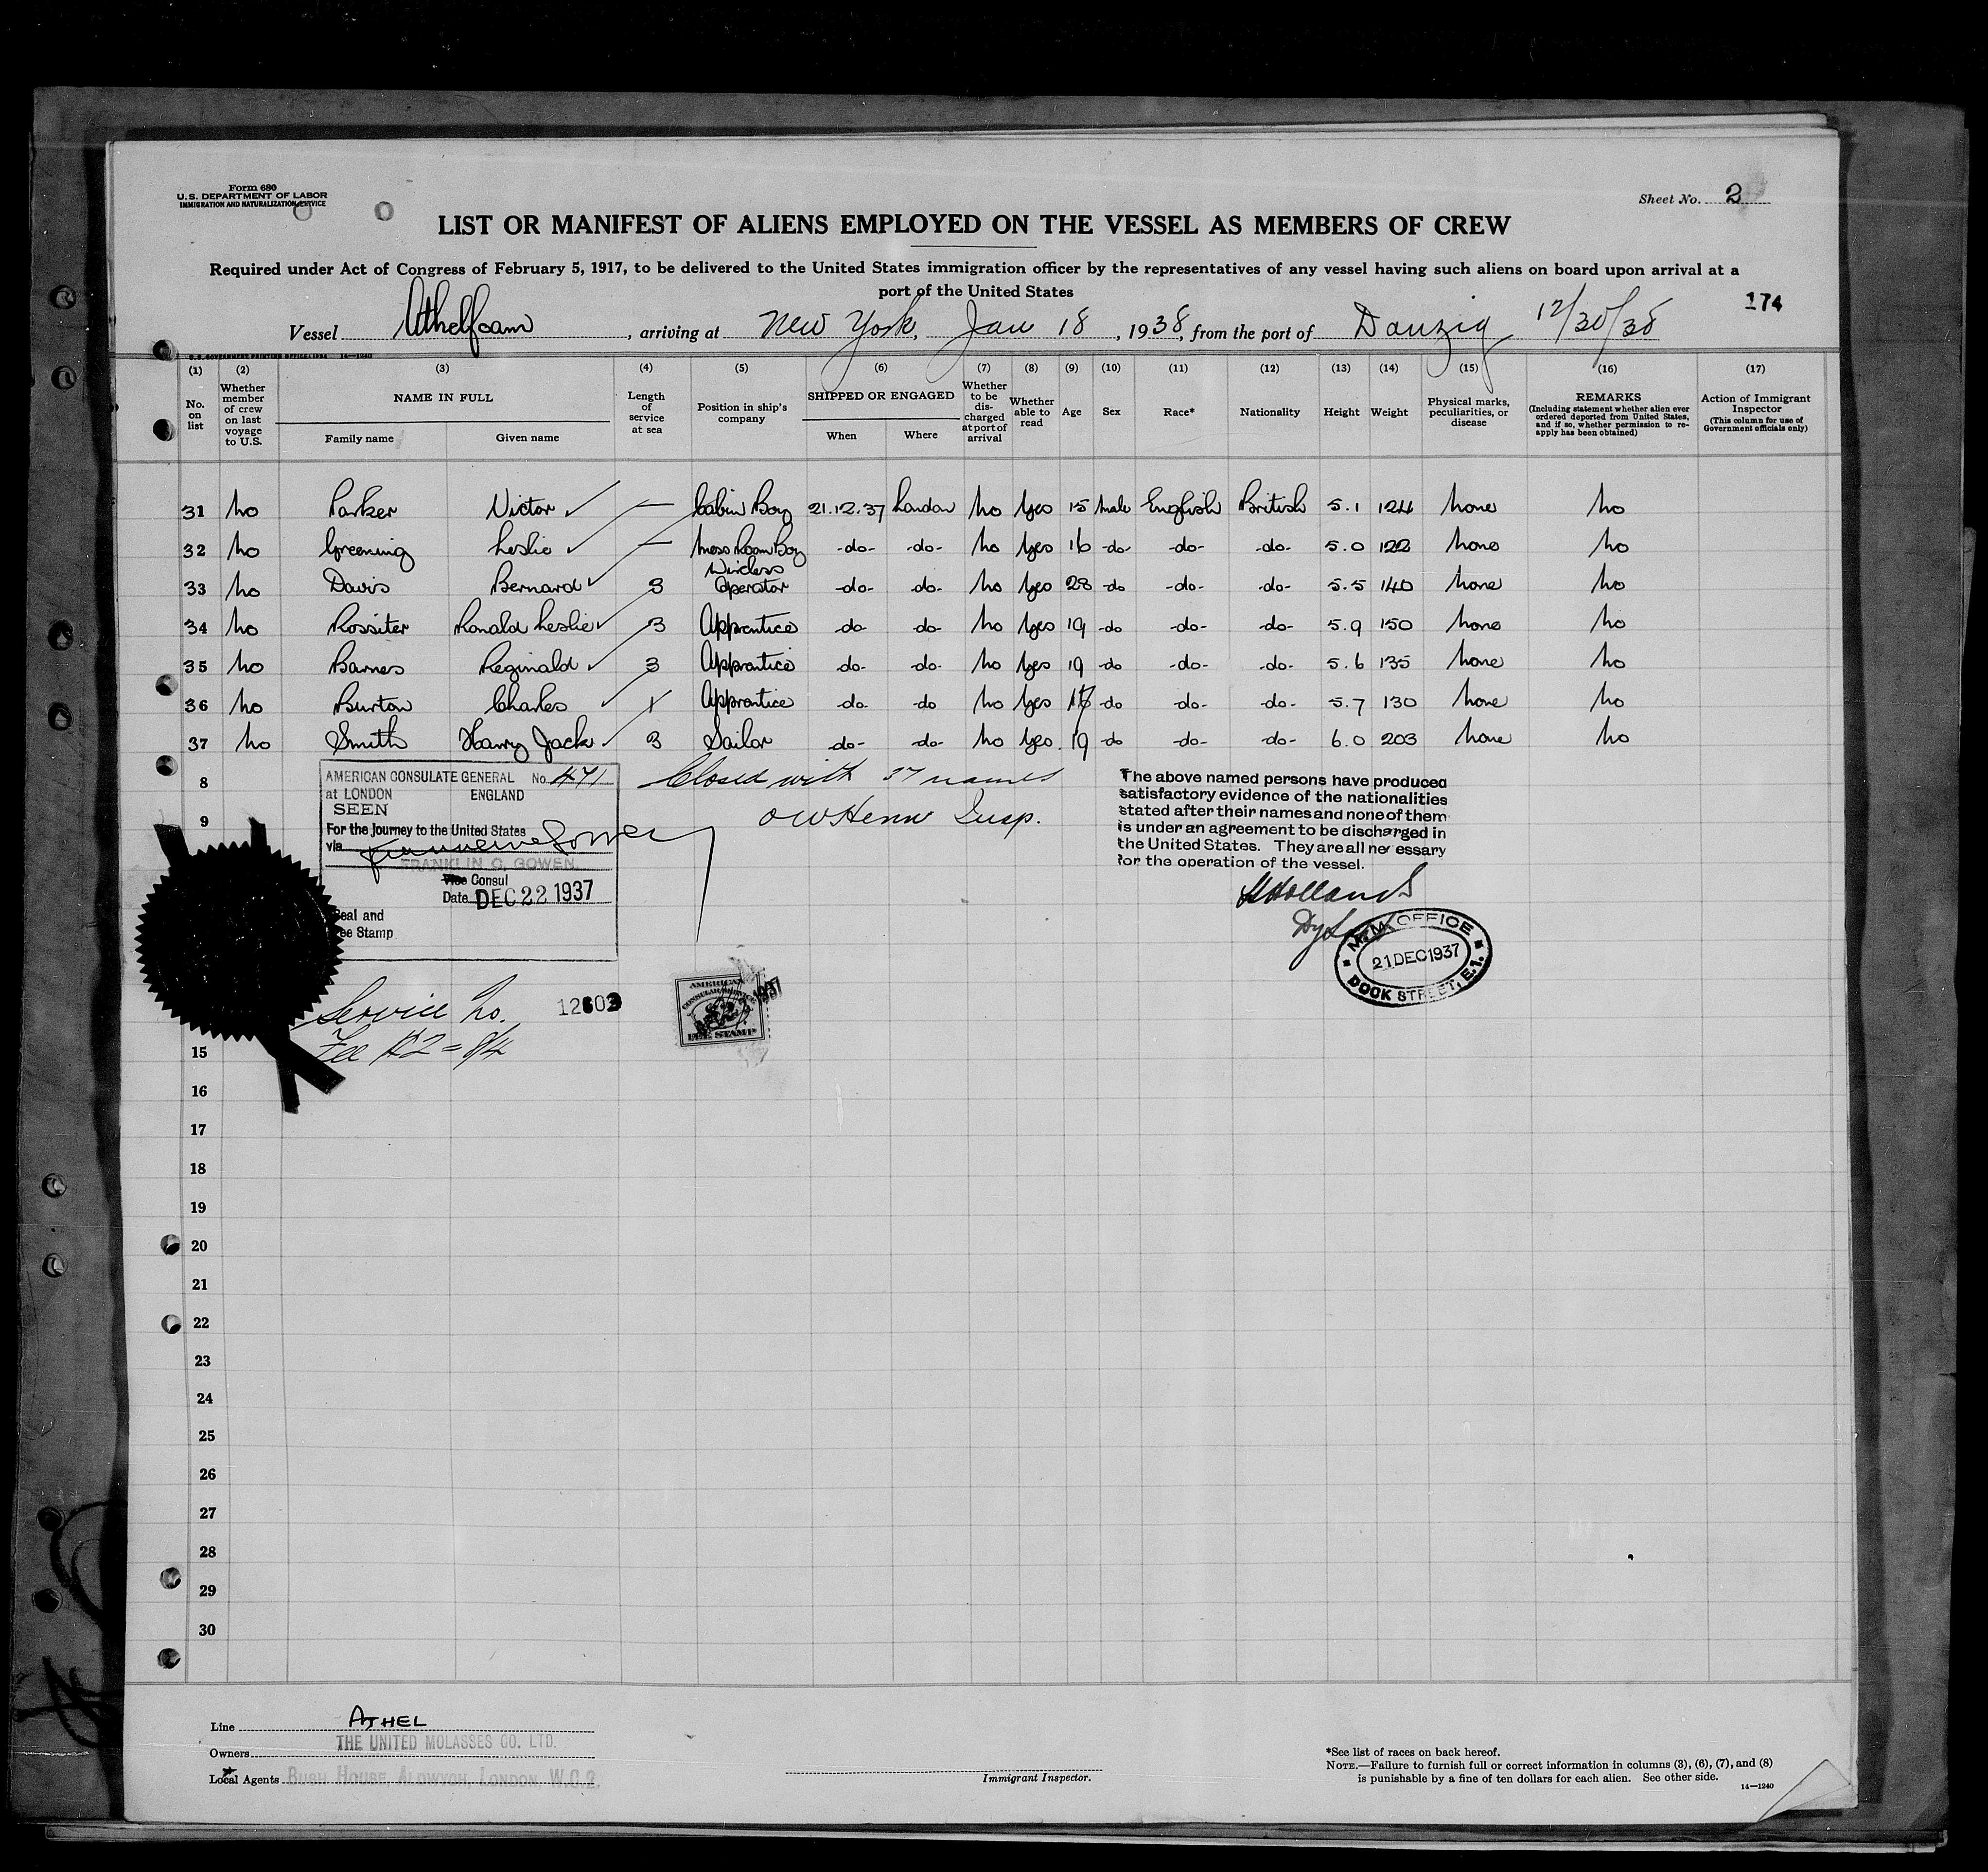 Form 680
U.S. DEPARTMENT OF LABOR
IMMIGRATION AND NATURALIZATION SERVICE
Sheet No. 2
LIST OR MANIFEST OF ALIENS EMPLOYED ON THE VESSEL AS MEMBERS OF CREW
Required under Act of Congress of February 5, 1917, to be delivered to the United States immigration officer by the representatives of any vessel having such aliens on board upon arrival at a
port of the United States
174
Vessel Athelfoam, arriving at New York, Jan 18, 1938, from the port of Danzig 12/30/38
U.S. GOVERNMENT PRINTING OFFICE: 1934 14—1240
(1) (2) (3) (4) (5) (6) (7) (8) (9) (10) (11) (12) (13) (14) (15) (16) (17)
No. on list
Whether member of crew on last voyage to U.S.
NAME IN FULL
Family name
Given name
Length of service at sea
Position in ship's company
SHIPPED OR ENGAGED
When
Where
Whether to be discharged at port of arrival
Whether able to read
Age
Sex
Race*
Nationality
Height
Weight
Physical marks, peculiarities, or disease
REMARKS
(Including statement whether alien ever ordered deported from United States, and if so, whether permission to reapply has been obtained)
Action of Immigrant Inspector
(This column for use of Government officials only)
31 No Parker Victor ✓ — Cabin Boy 21.12.37 London No Yes 15 Male English British 5.1 124 None No
32 No Greening Leslie ✓ — Mess Room Boy -do- -do- No Yes 16 -do- -do- -do- 5.0 122 None No
33 No Davis Bernard ✓ 3 Wireless Operator -do- -do- No Yes 28 -do -do- -do- 5.5 140 None No
34 No Rossiter Ronald Leslie ✓ 3 Apprentice -do- -do- No Yes 19 -do -do- -do- 5.9 150 None No
35 No Barnes Reginald ✓ 3 Apprentice -do- -do- No Yes 19 -do -do- -do- 5.6 135 None No
36 No Burton Charles ✓ 1 Apprentice -do- -do No Yes 17 -do -do- -do- 5.7 130 None No
37 No Smith Harry Jack ✓ 3 Sailor -do- -do- No Yes 19 -do -do- -do- 6.0 203 None No
8
9
AMERICAN CONSULATE GENERAL No. 471
at LONDON ENGLAND
SEEN
For the Journey to the United States
via
FRANKLIN C. GOWEN.
Vice Consul
Date DEC 22 1937
Seal and
Fee Stamp
Closed with 37 names
Insp.
The above named persons have produced
satisfactory evidence of the nationalities
stated after their names and none of them
is under an agreement to be discharged in
the United States. They are all necessary
for the operation of the vessel.
Holland
M.M. OFFICE
21 DEC 1937
DOCK STREET, E.1.
Service No. 12603
Fee $2 = 8/4
AMERICAN
CONSULAR SERVICE
FEE STAMP
1937
15
16
17
18
19
20
21
22
23
24
25
26
27
28
29
30
Line ATHEL
Owners THE UNITED MOLASSES CO. LTD.
Local Agents BUSH HOUSE, ALDWYCH, LONDON, W.C.2.
Immigrant Inspector.
*See list of races on back hereof.
NOTE.—Failure to furnish full or correct information in columns (3), (6), (7), and (8)
is punishable by a fine of ten dollars for each alien. See other side.
14—1240